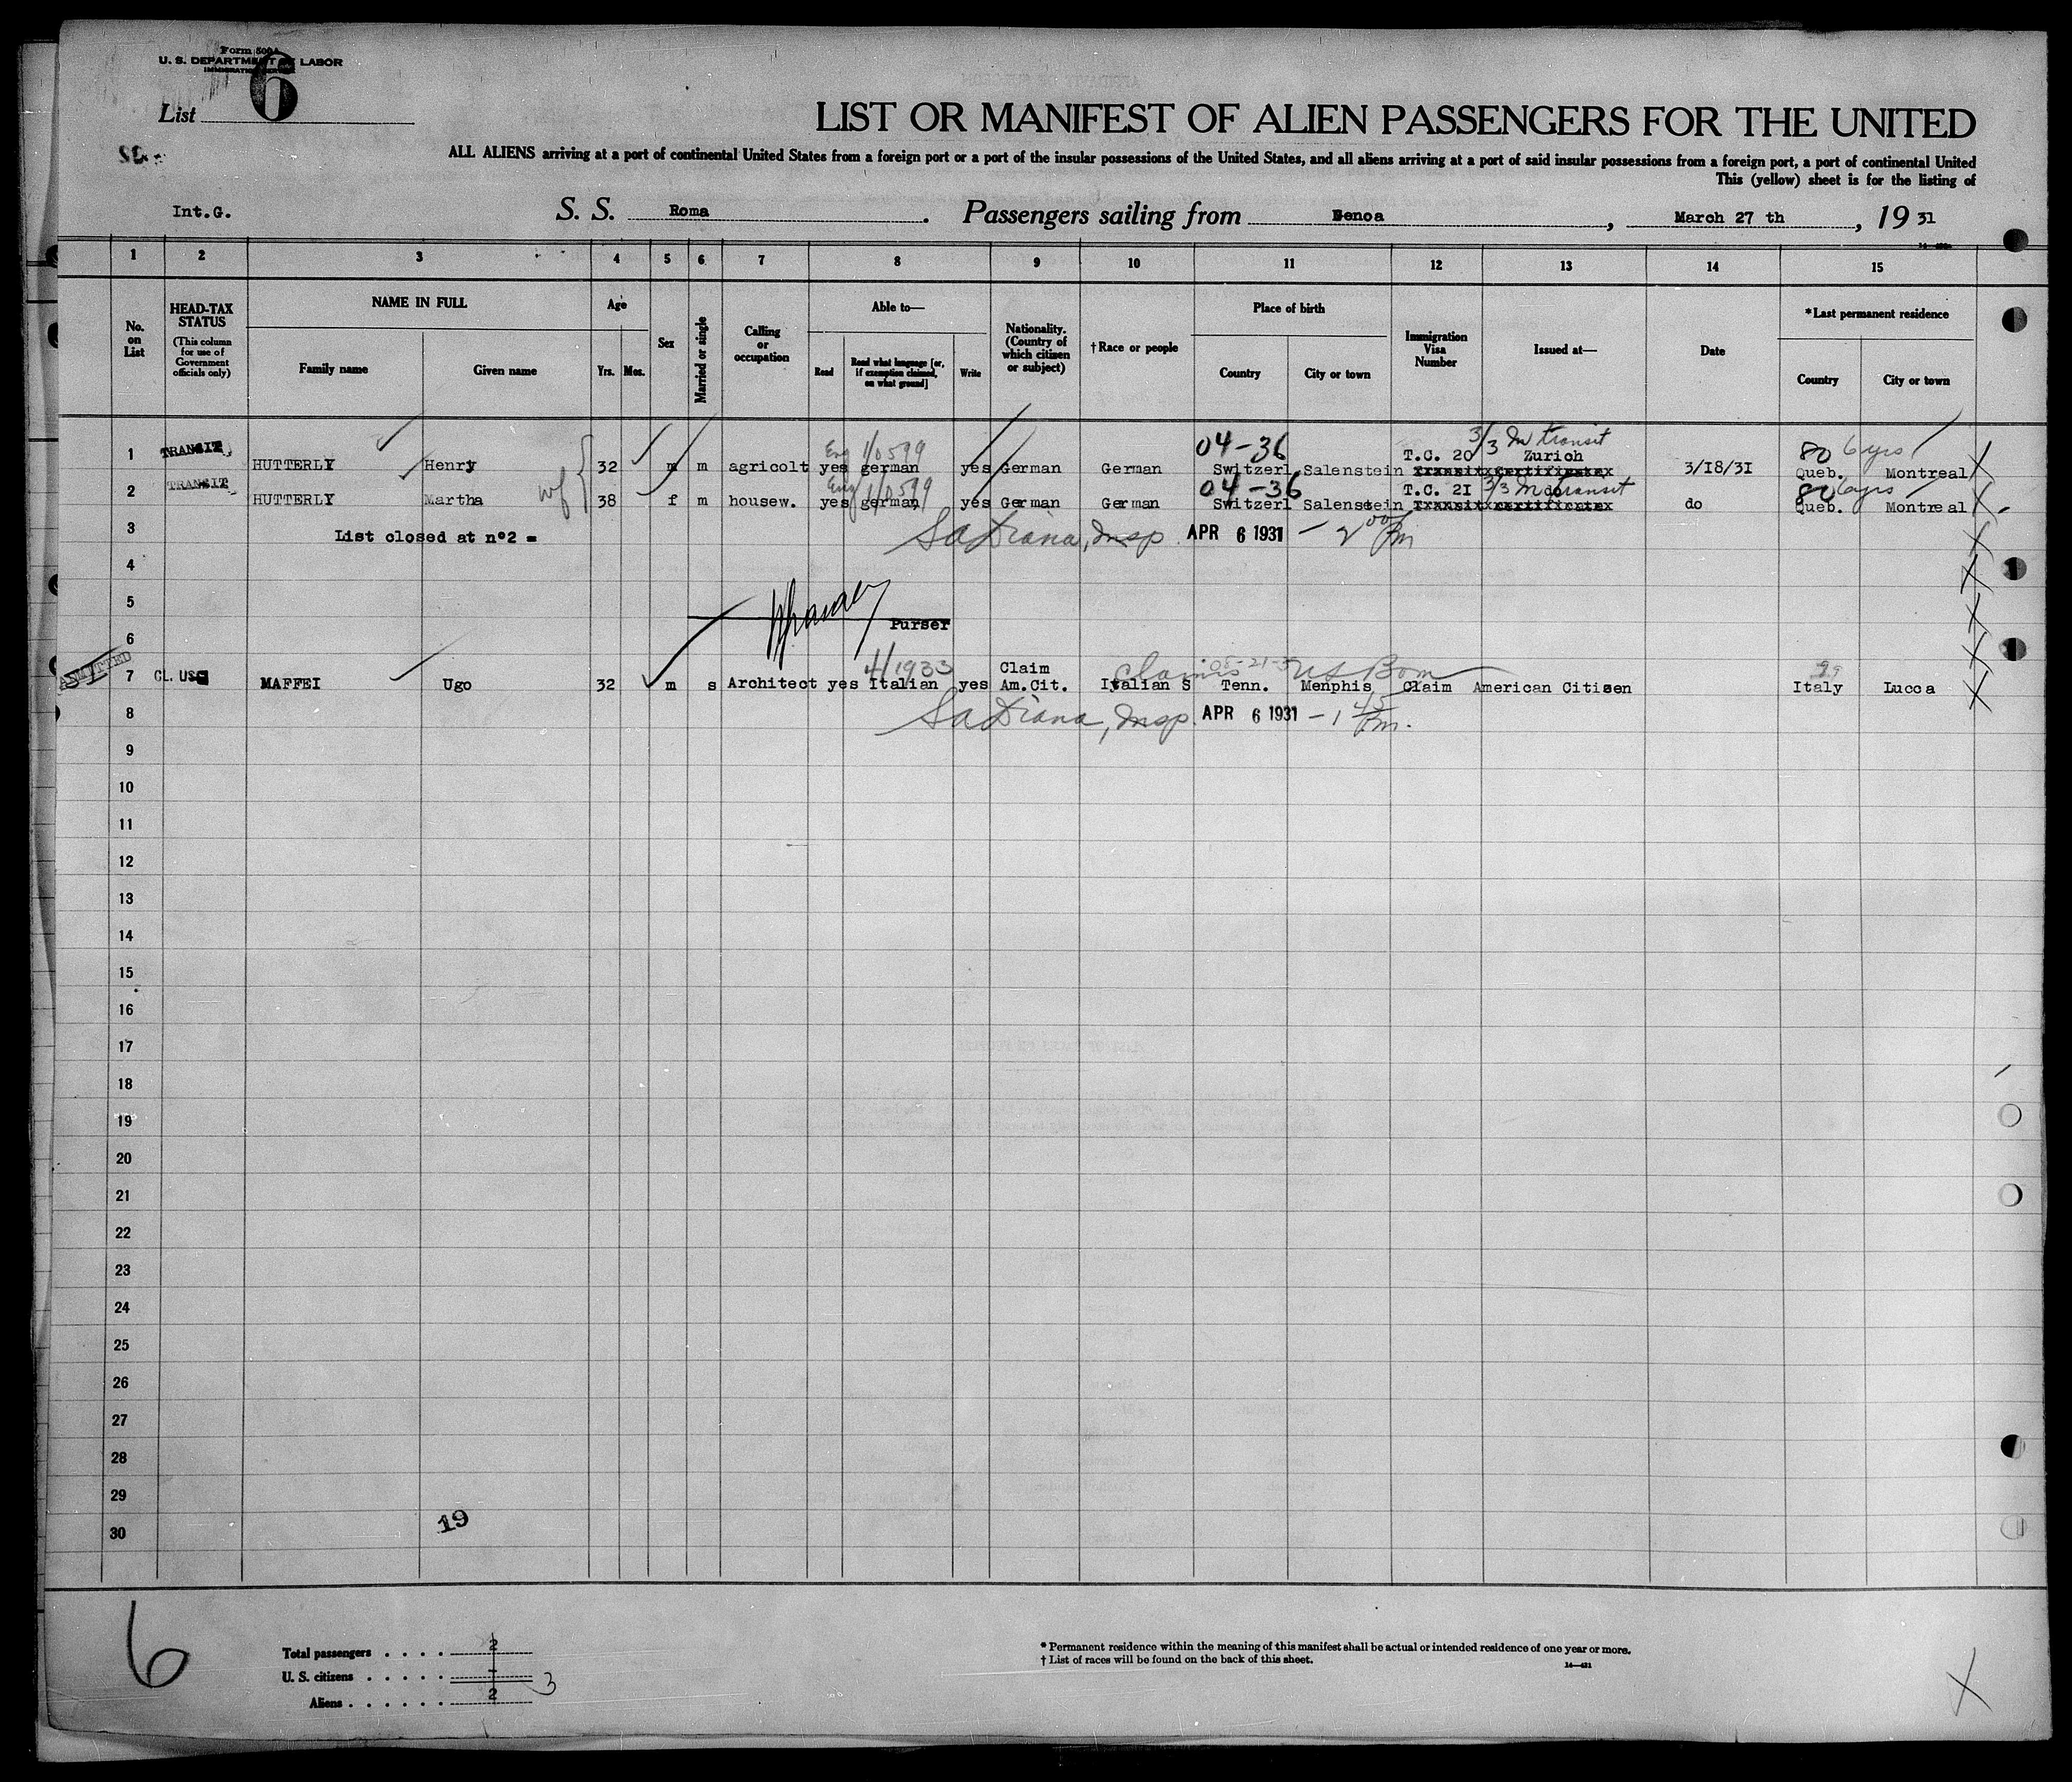 Form 500A
U. S. DEPARTMENT OF LABOR
IMMIGRATION SERVICE
List 6
LIST OR MANIFEST OF ALIEN PASSENGERS FOR THE UNITED
ALL ALIENS arriving at a port of continental United States from a foreign port or a port of the insular possessions of the United States, and all aliens arriving at a port of said insular possessions from a foreign port, a port of continental United
This (yellow) sheet is for the listing of
Int.G. S. S. Roma. Passengers sailing from Genoa, March 27 th, 19 31
1 2 3 4 5 6 7 8 9 10 11 12 13 14 15
No. on List
HEAD-TAX STATUS (This column for use of Government officials only)
NAME IN FULL
Family name Given name
Age
Yrs. Mos.
Sex
Married or single
Calling or occupation
Able to—
Read Read what language [or, if exemption claimed, on what ground] Write
Nationality. (Country of which citizen or subject)
† Race or people
Place of birth
Country City or town
Immigration Visa Number
Issued at—
Date
* Last permanent residence
Country City or town
Eng 1/0599 04-36 3/3 In transit 80 6 yrs
1 TRANSIT HUTTERLY Henry 32 m m agricolt yes german yes German German Switzerl Salenstein T.C. 20 Zurich 3/18/31 Queb. Montreal
wf Eng 1/0599 04-36 3/3 In transit 80 6 yrs
2 TRANSIT HUTTERLY Martha 38 f m housew. yes german yes German German Switzerl Salenstein T.C. 21 do do Queb. Montreal
3 List closed at n°2 = SaDiana, Insp. APR 6 1931 - 2 00 Pm
4
5
Purser
6
4/1933 Claim claims US Born 29
7 ADMITTED CL. USC MAFFEI Ugo 32 m s Architect yes Italian yes Am.Cit. Italian S Tenn. Menphis Claim American Citizen Italy Lucca
8 SaDiana, Insp. APR 6 1931 - 1 45 Pm.
9
10
11
12
13
14
15
16
17
18
19
20
21
22
23
24
25
26
27
28
29
30 19
6
Total passengers . . . . 2
U. S. citizens . . . . . - 3
Aliens . . . . . . 2
* Permanent residence within the meaning of this manifest shall be actual or intended residence of one year or more.
† List of races will be found on the back of this sheet.
14—421
X